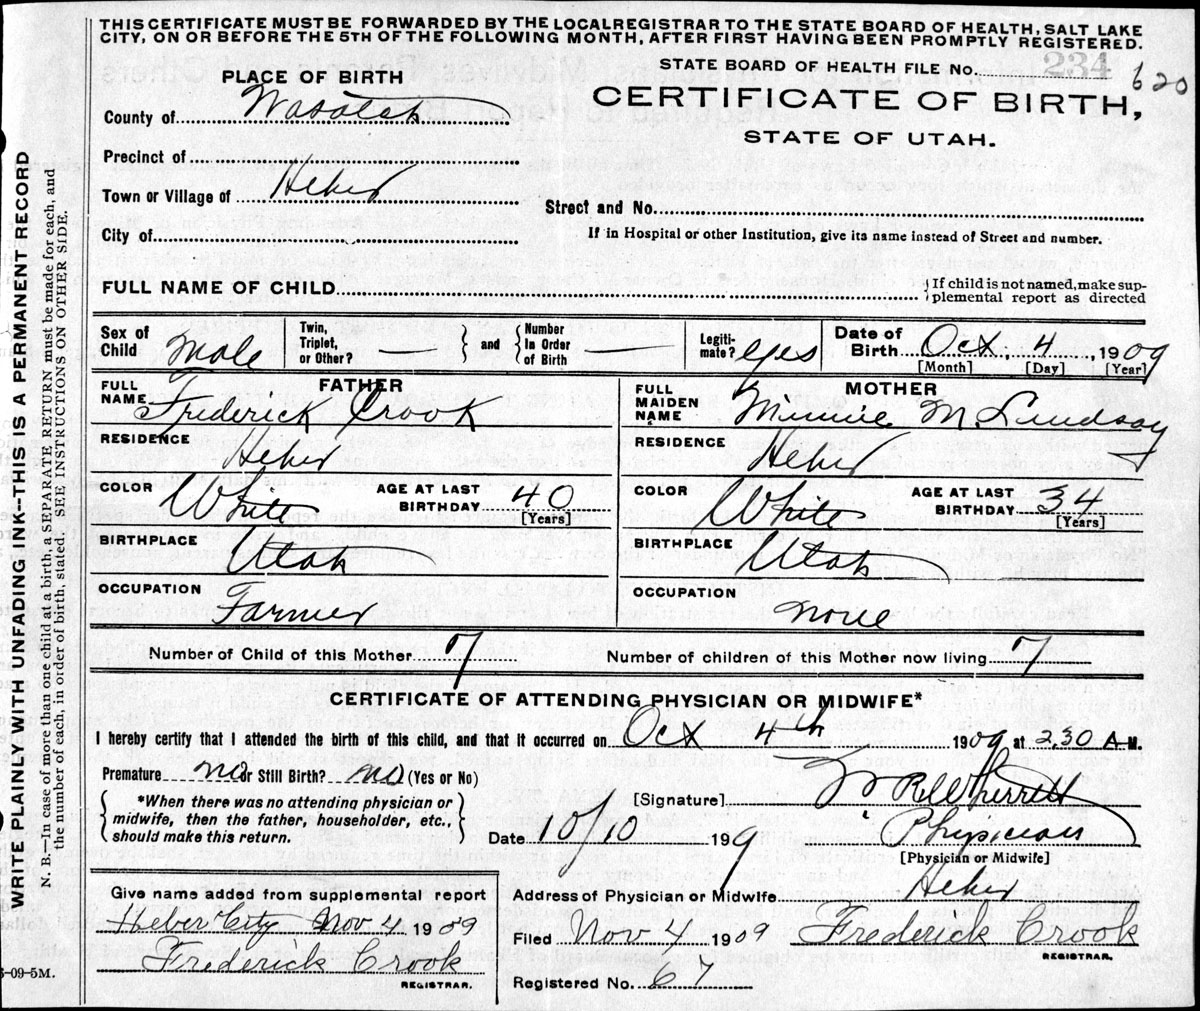 THIS CERTIFICATE MUST BE FORWARDED BY THE LOCAL REGISTRAR TO THE STATE BOARD OF HEALTH, SALT LAKE
CITY, ON OR BEFORE THE 5TH OF THE FOLLOWING MONTH, AFTER FIRST HAVING BEEN PROMPTLY REGISTERED.
PLACE OF BIRTH
STATE BOARD OF HEALTH FILE No. 234 620
CERTIFICATE OF BIRTH,
STATE OF UTAH.
County of Wasatch
Precinct of
Town or Village of Heber
Street and No.
City of
If in Hospital or other Institution, give its name instead of Street and number.
FULL NAME OF CHILD
If child is not named, make sup-
plemental report as directed
Sex of Child Male
Twin, Triplet, or Other? —
and
Number In Order of Birth —
Legiti-mate? yes
Date of Birth Oct, 4, 1909
[Month] [Day] [Year]
FATHER
FULL NAME Frederick Crook
RESIDENCE Heber
COLOR White
AGE AT LAST BIRTHDAY 40
[Years]
BIRTHPLACE Utah
OCCUPATION Farmer
MOTHER
FULL MAIDEN NAME Minnie M. Lindsay
RESIDENCE Heber
COLOR White
AGE AT LAST BIRTHDAY 34
[Years]
BIRTHPLACE Utah
OCCUPATION none
Number of Child of this Mother 7
Number of children of this Mother now living 7
CERTIFICATE OF ATTENDING PHYSICIAN OR MIDWIFE*
I hereby certify that I attended the birth of this child, and that it occurred on Oct 4th 1909 at 2,30 A M.
Premature no or Still Birth? no (Yes or No)
*When there was no attending physician or
midwife, then the father, householder, etc.,
should make this return.
[Signature] Wherritt
Date 10/10 1909
Physician
[Physician or Midwife]
Address of Physician or Midwife Heber
Give name added from supplemental report
Heber City Nov 4 1909
Frederick Crook
REGISTRAR.
Filed Nov 4 1909 Frederick Crook
REGISTRAR.
Registered No. 67
WRITE PLAINLY WITH UNFADING INK—THIS IS A PERMANENT RECORD
N. B.—In case of more than one child at a birth, a SEPARATE RETURN must be made for each, and
the number of each, in order of birth, stated. SEE INSTRUCTIONS ON OTHER SIDE.
-09-5M.